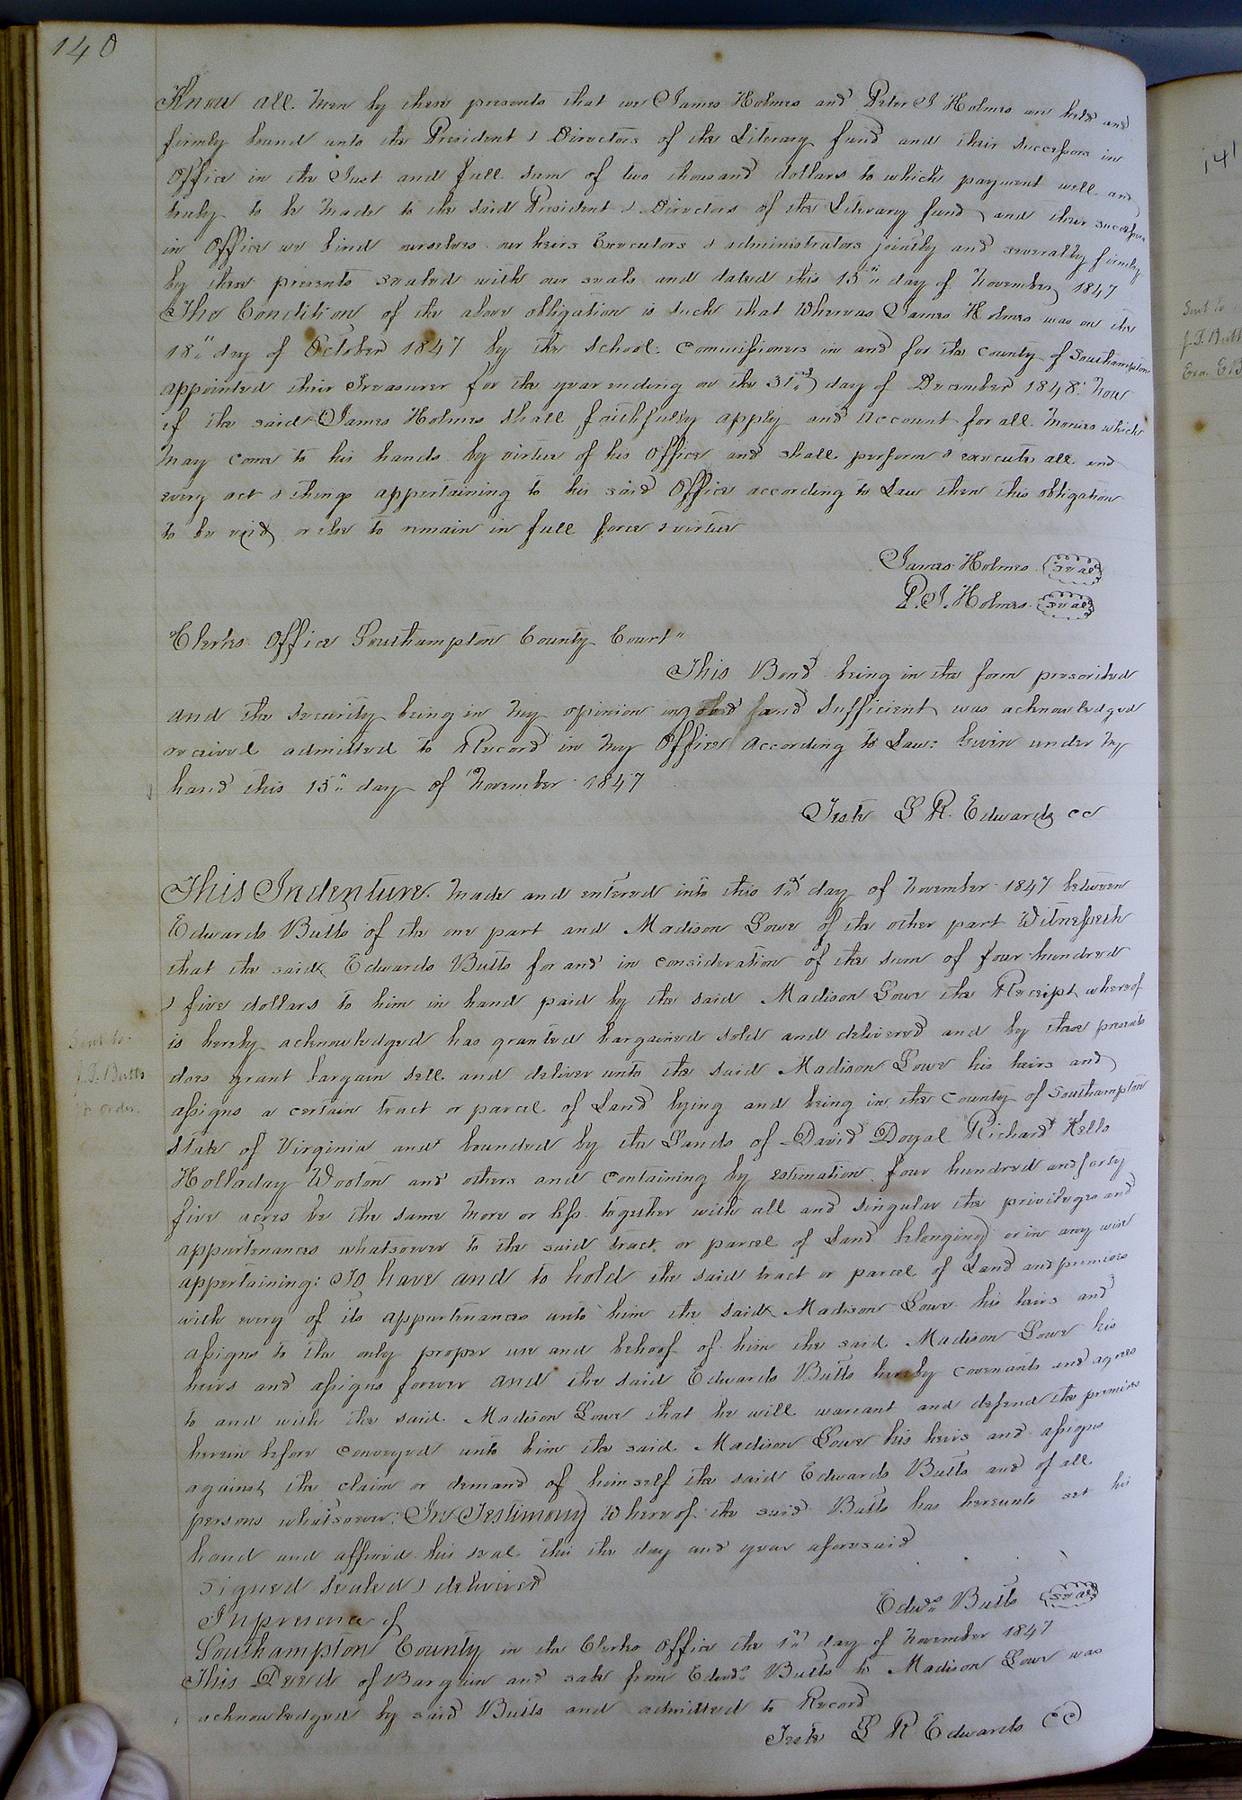 140
Know all men by these presents that we James Holmes and Peter J Holmes are held and
firmly bound unto the President & Directors of the Literary fund and their successors in
Office in the Just and full sum of two thousand dollars to which payment well and
truly to be made to the said President & Directors of the Literary fund and their successors
in Office we bind ourselves our heirs Executors & administrators jointly and severally firmly
by these presents sealed with our seals and dated this 15th day of November 1847
The Condition of the above obligation is such that Whereas James Holmes was on the
18th day of October 1847 by the School Commissioners in and for the County of Southampton
appointed their Treasurer for the year ending on the 31st day of December 1848. Now
if the said James Holmes shall faithfully apply and account for all monies which
may come to his hands by virtue of his Office and shall perform & execute all and
every act & things appertaining to his said Office according to Law then this obligation
to be void or else to remain in full force & virtue
James Holmes Seal
P. J. Holmes Seal
Clerks Office Southampton County Court
This Bond being in the form prescribed
and the security being in my opinion good and Sufficient was acknowledged
received admitted to Record in my Office According to Law: Given under my
hand this 15th day of November 1847
Teste L R. Edwards CC
This Indenture made and entered into this 1st day of November 1847 between
Edwards Butts of the one part and Madison Lowe of the other part Witnesseth
that the said Edwards Butts for and in consideration of the sum of four hundred
& five dollars to him in hand paid by the said Madison Lowe the Receipt whereof
is hereby acknowledged has granted bargained sold and delivered and by these presents
does grant bargain sell and deliver unto the said Madison Lowe his heirs and
assigns a certain tract or parcel of Land lying and being in the County of Southampton
State of Virginia and bounded by the Lands of David Doyal Richard Kello
Holladay Wooton and others and containing by estimation four hundred and forty
five acres be the same more or less together with all and singular the privileges and
appurtenances whatsoever to the said tract or parcel of Land belonging or in any wise
appertaining: To have and to hold the said tract or parcel of Land and premises
with every of its appurtenances unto him the said Madison Lowe his heirs and
assigns to the only proper use and behoof of him the said Madison Lowe his
heirs and assigns forever and the said Edwards Butts hereby covenants and agrees
to and with the said Madison Lowe that he will warrant and defend the premises
herein before conveyed unto him the said Madison Lowe his heirs and assigns
against the claim or demand of himself the said Edwards Butts and of all
persons whatsoever: In Testimony Whereof the said Butts has hereunto set his
hand and affixed his seal this the day and year aforesaid
Signed Sealed & delivered
In presence of
Edwds Butts Seal
Southampton County in the Clerks Office the 1st day of November 1847
This Deed of Bargain and sale from Edwds Butts to Madison Lowe was
acknowledged by said Butts and admitted to Record
Teste L R Edwards CC
Sent to
J. J. Butts
pr order
141
Sent to
J. J. Butt